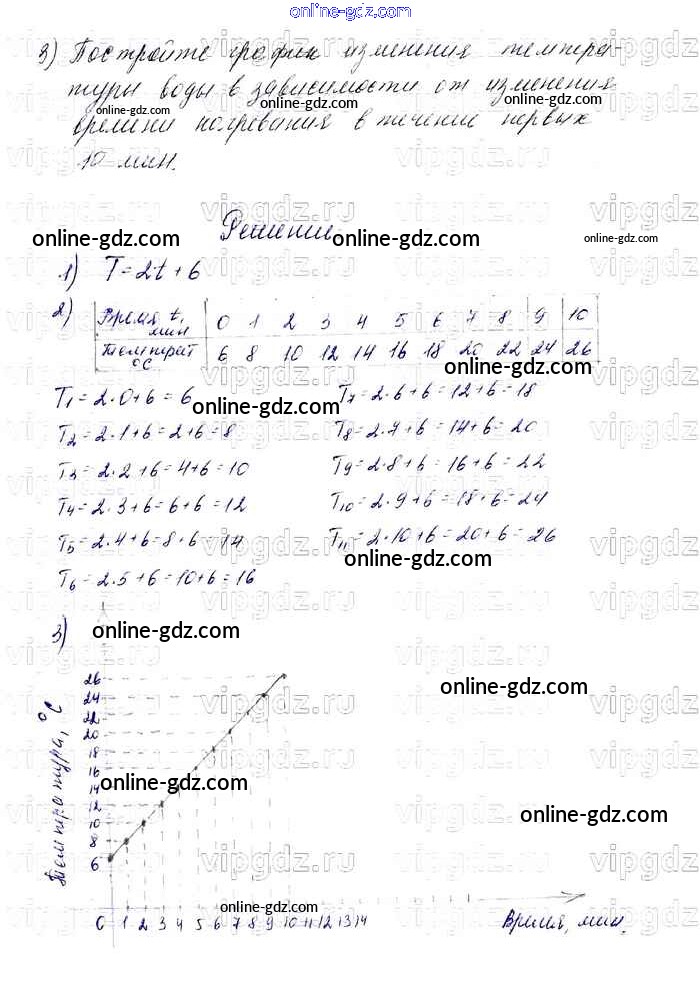 online-gdz.com
3) Постройте график изменения темпера-
туры воды в зависимости от изменения
online-gdz.com online-gdz.com online-gdz.com
времени нагревания в течение первых
10 мин.
vipgdz.ru vipgdz.ru vipgdz
Решение.
online-gdz.com online-gdz.com online-gdz.com
1) T=2t+6
2) Время t, мин 0 1 2 3 4 5 6 7 8 9 10
Температ °C 6 8 10 12 14 16 18 20 22 24 26
T1=2·0+6=6 T7=2·6+6=12+6=18
online-gdz.com online-gdz.com
T2=2·1+6=2+6=8 T8=2·7+6=14+6=20
T3=2·2+6=4+6=10 T9=2·8+6=16+6=22
T4=2·3+6=6+6=12 T10=2·9+6=18+6=24
T5=2·4+6=8+6=14 T11=2·10+6=20+6=26
online-gdz.com
T6=2·5+6=10+6=16
vipgdz.ru vipgdz.ru vipgdz
3) online-gdz.com
26
online-gdz.com
24
22
20
18
16
online-gdz.com
14
12
online-gdz.com
10
8
6
Температура, °C
online-gdz.com
0 1 2 3 4 5 6 7 8 9 10 11 12 13 14
Время, мин.